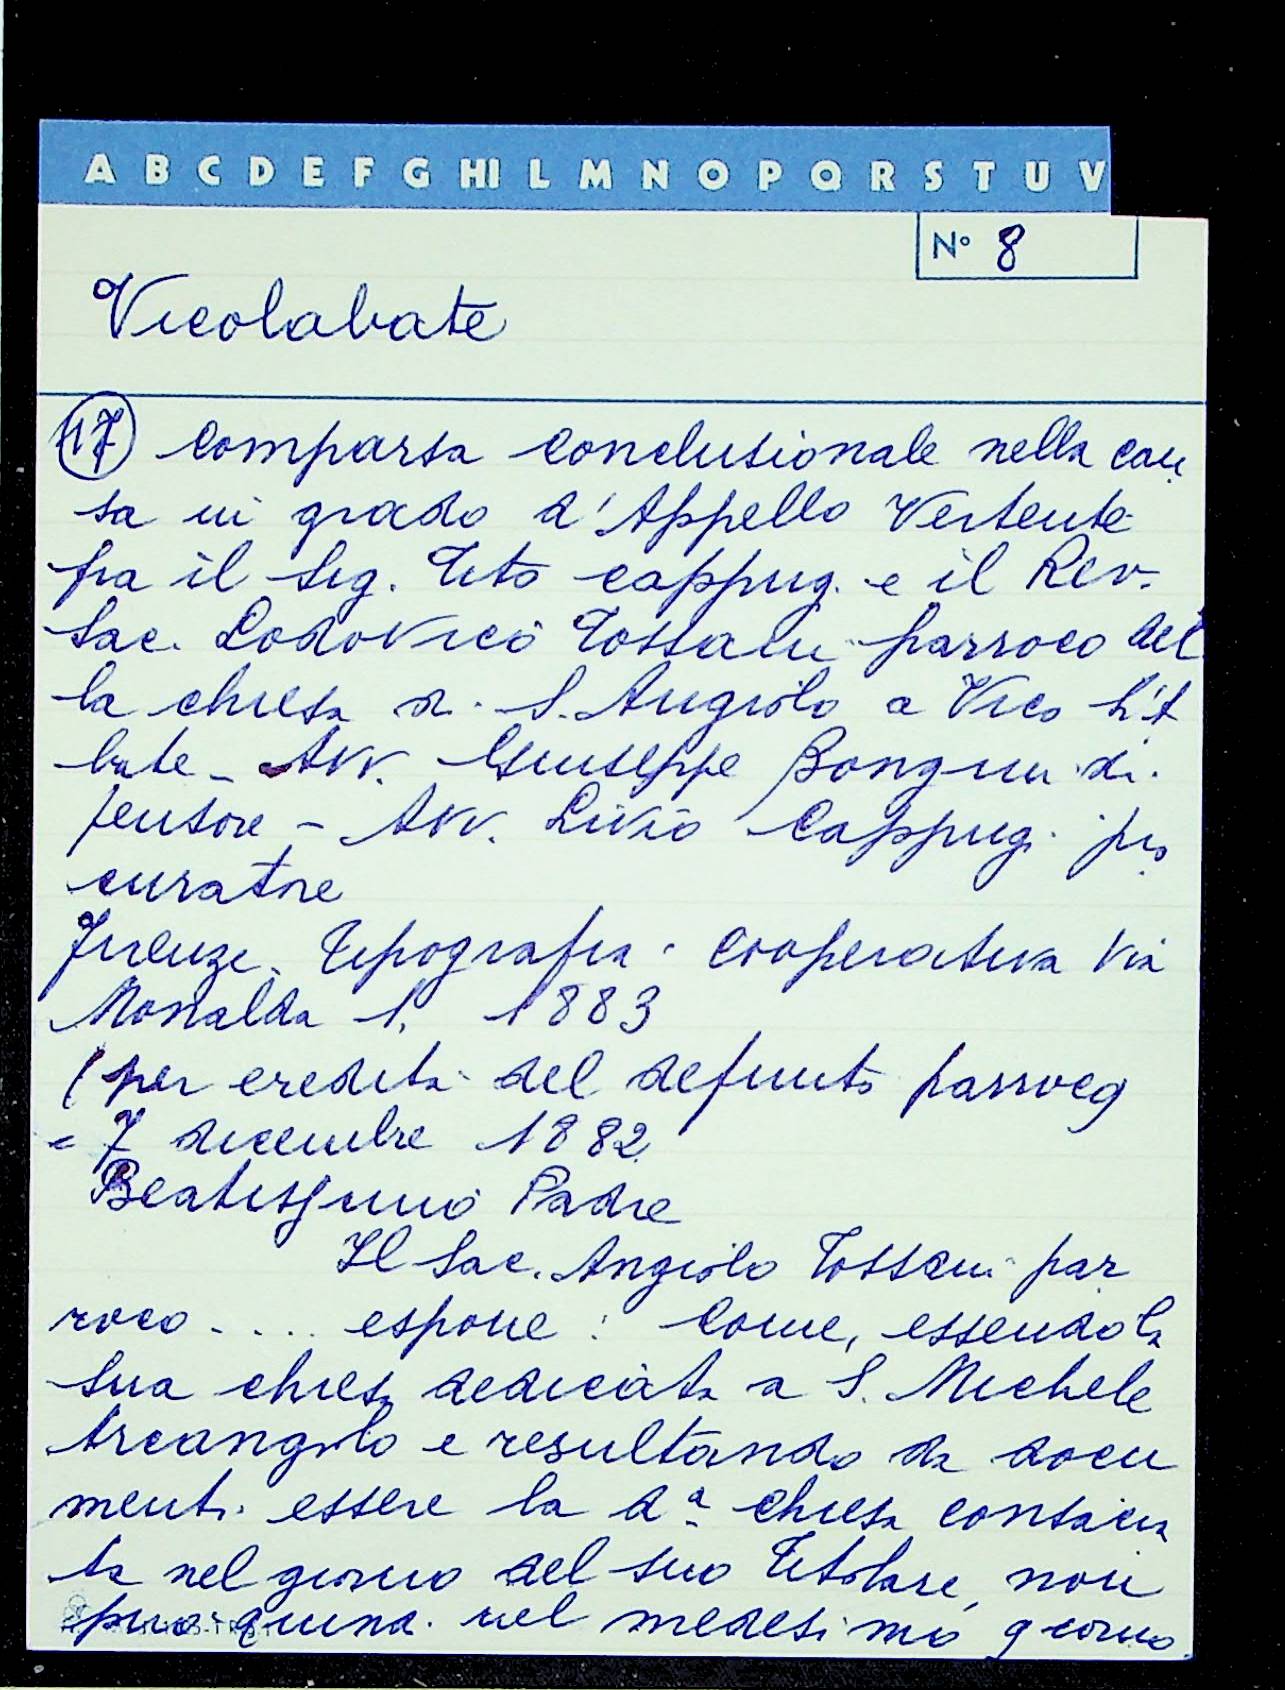 A B C D E F G HI L M N O P Q R S T U V
N° 8
Vicolabate
17 Comparsa Conclusionale nella cau
sa in grado d'Appello Vertente
fra il Sig. Tito Cappugi e il Rev.
Sac. Lodovico Tossani parroco del
la chiesa di S. Angiolo a Vico L'A
bate - Avv. Giuseppe Bongini di
fensore - Avv. Livio Cappugi pro
curatore
Firenze. Tipografia Cooperativa Via
Monalda 1. 1883
(per eredità del defunto parroco)
= 7 dicembre 1882
Beatissimo Padre
Il Sac. Angiolo Tossani par
roco .... espone: Come, essendo la
sua chiesa dedicata a S. Michele
Arcangelo e resultando da docu
menti essere la d.ª Chiesa consacra
ta nel giorno del suo Titolare, non
può quindi nel medesimo giorno